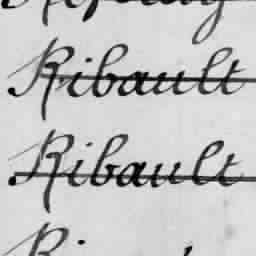 Ribault
Ribault